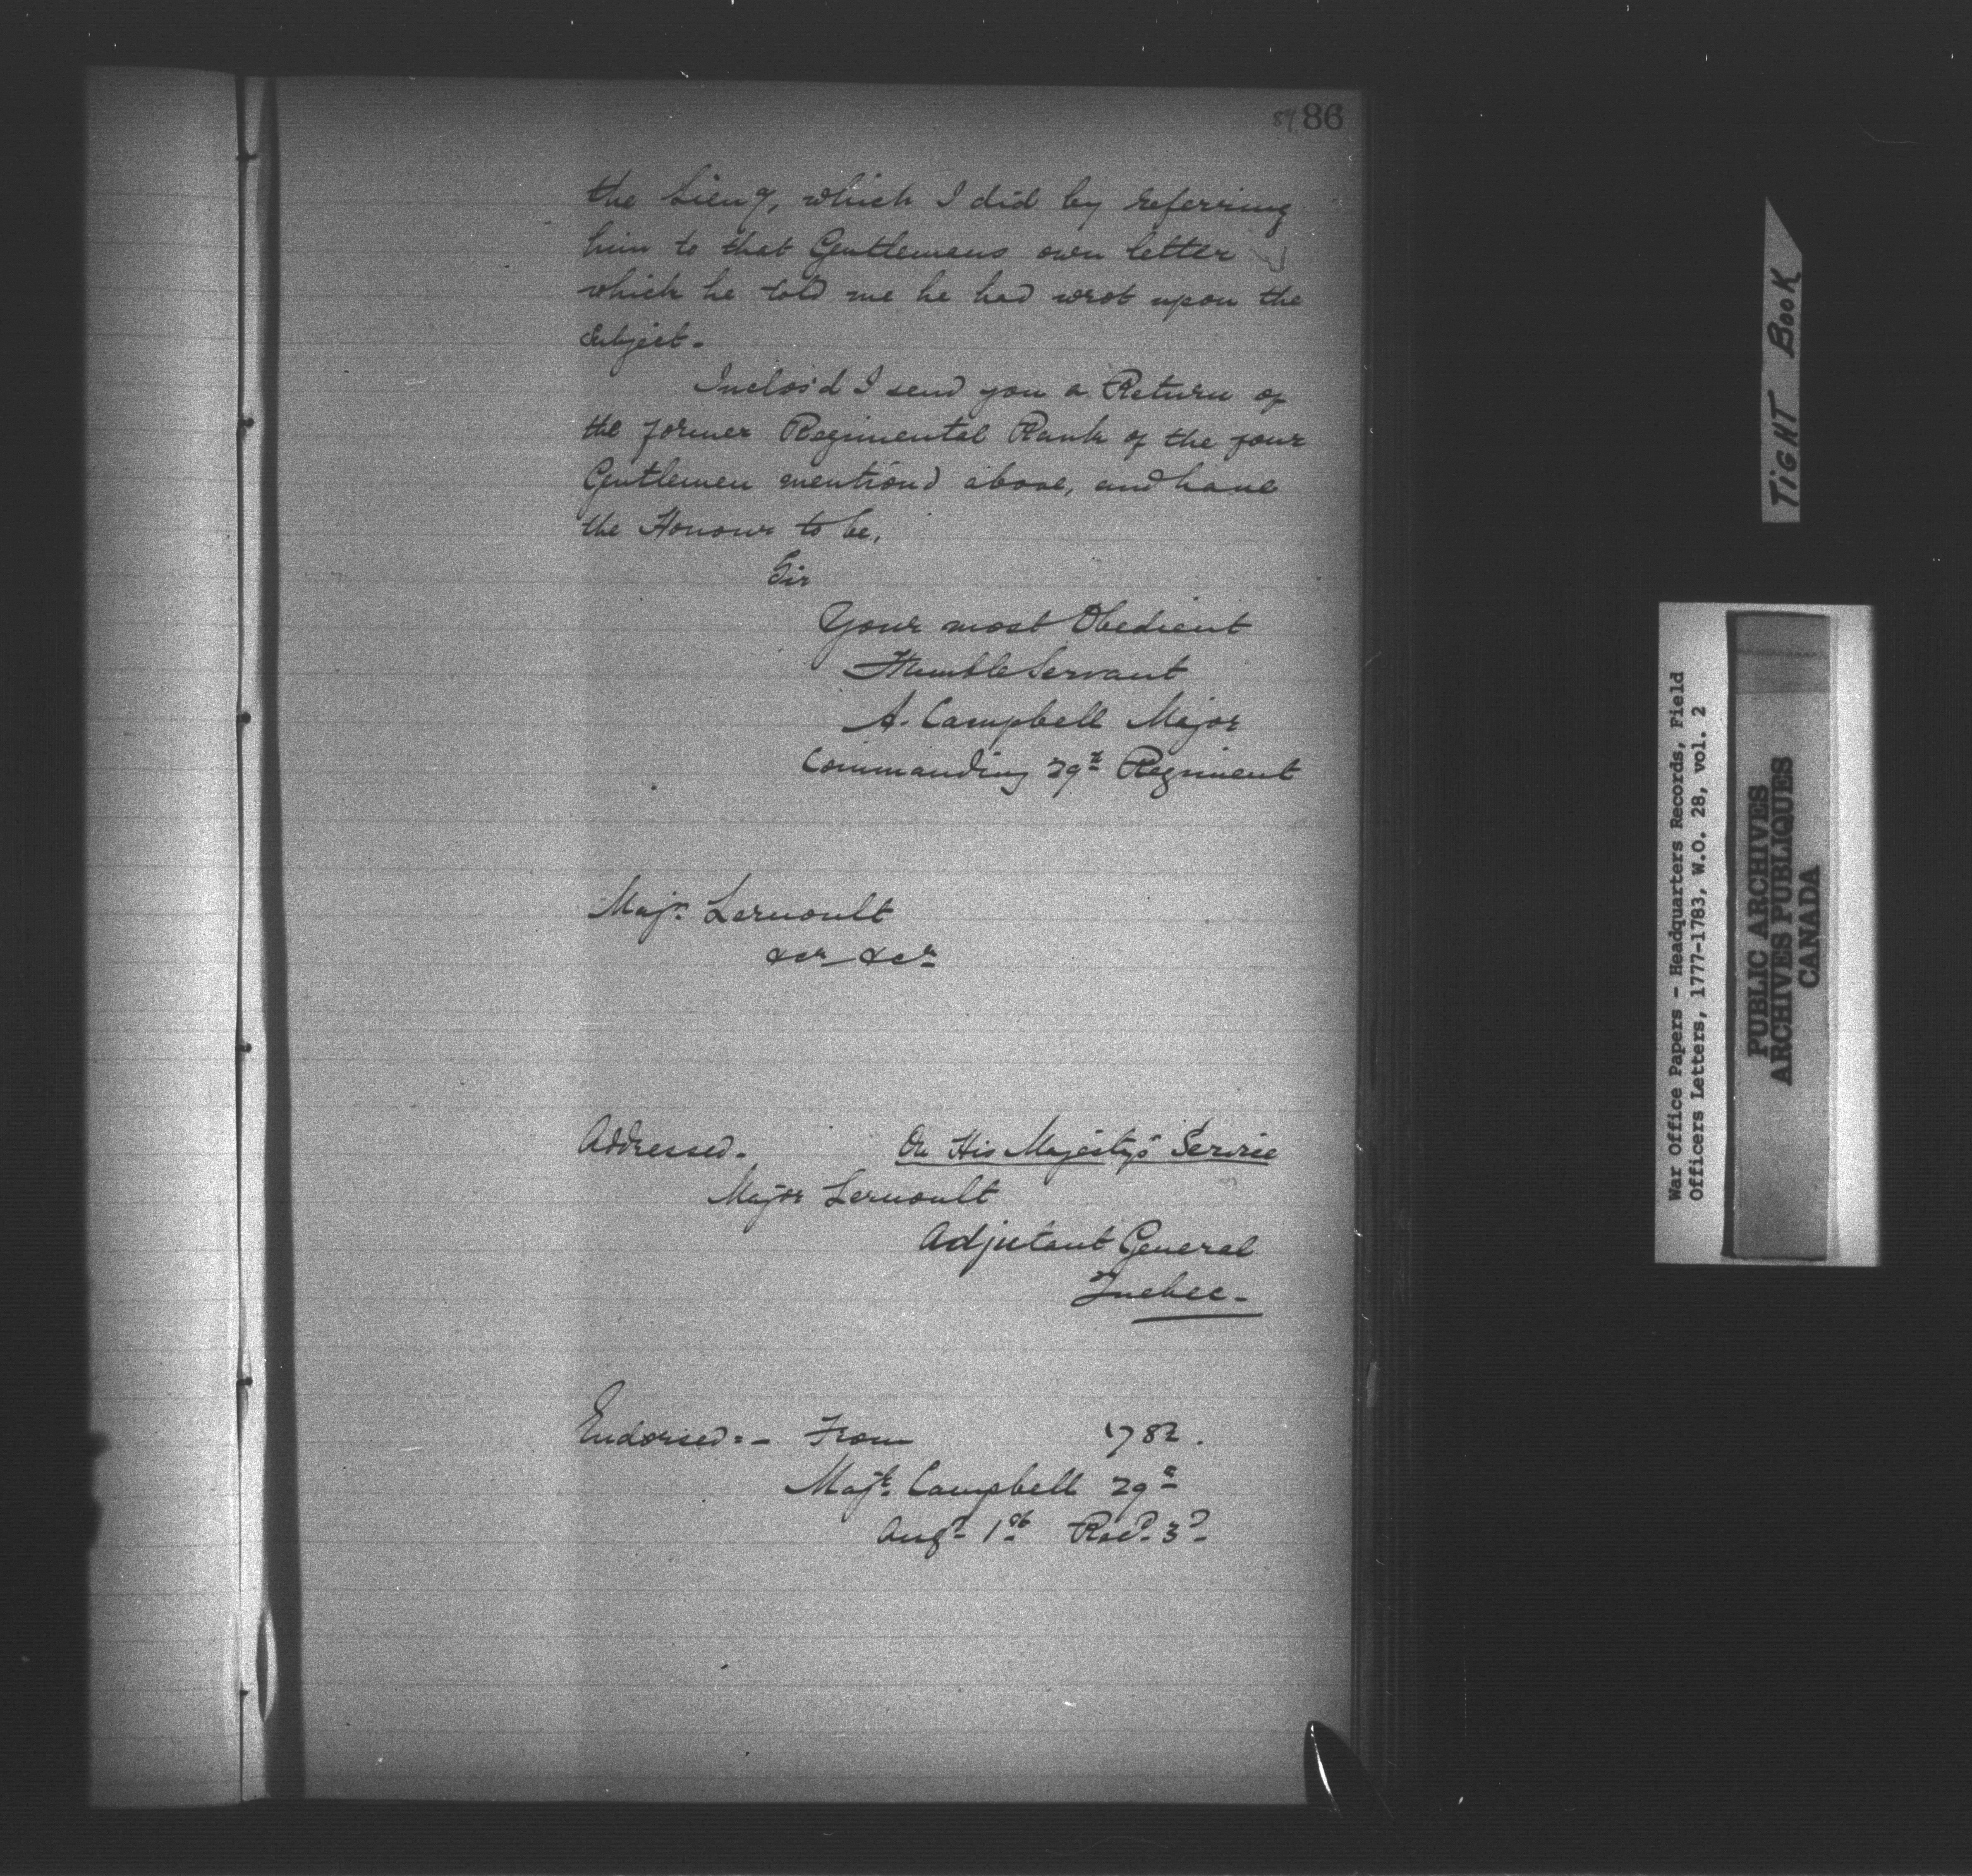 84 86
the Lieu^t, which I did by referring
him to that Gentlemans own letter
which he told me he had wrot upon the
Subject -
Inclos'd I send you a Return of
the former Regimental Rank of the four
Gentlemen mention'd above, and have
the Honour to be,
Sir
Your most Obedient
Humble Servant
A. Campbell Major
Commanding 29th Regiment
Majr. Lernoult
&cr &cr
Addressed - On His Majesty's Service
Major Lernoult
Adjutant General
Quebec -
Endorsed: - From 1782.
Majr. Campbell 29th
Augt. 1st Recd. 3d
TIGHT BOOK
War Office Papers - Headquarters Records, Field
Officers Letters, 1777-1783, W.O. 28, vol. 2
PUBLIC ARCHIVES
ARCHIVES PUBLIQUES
CANADA